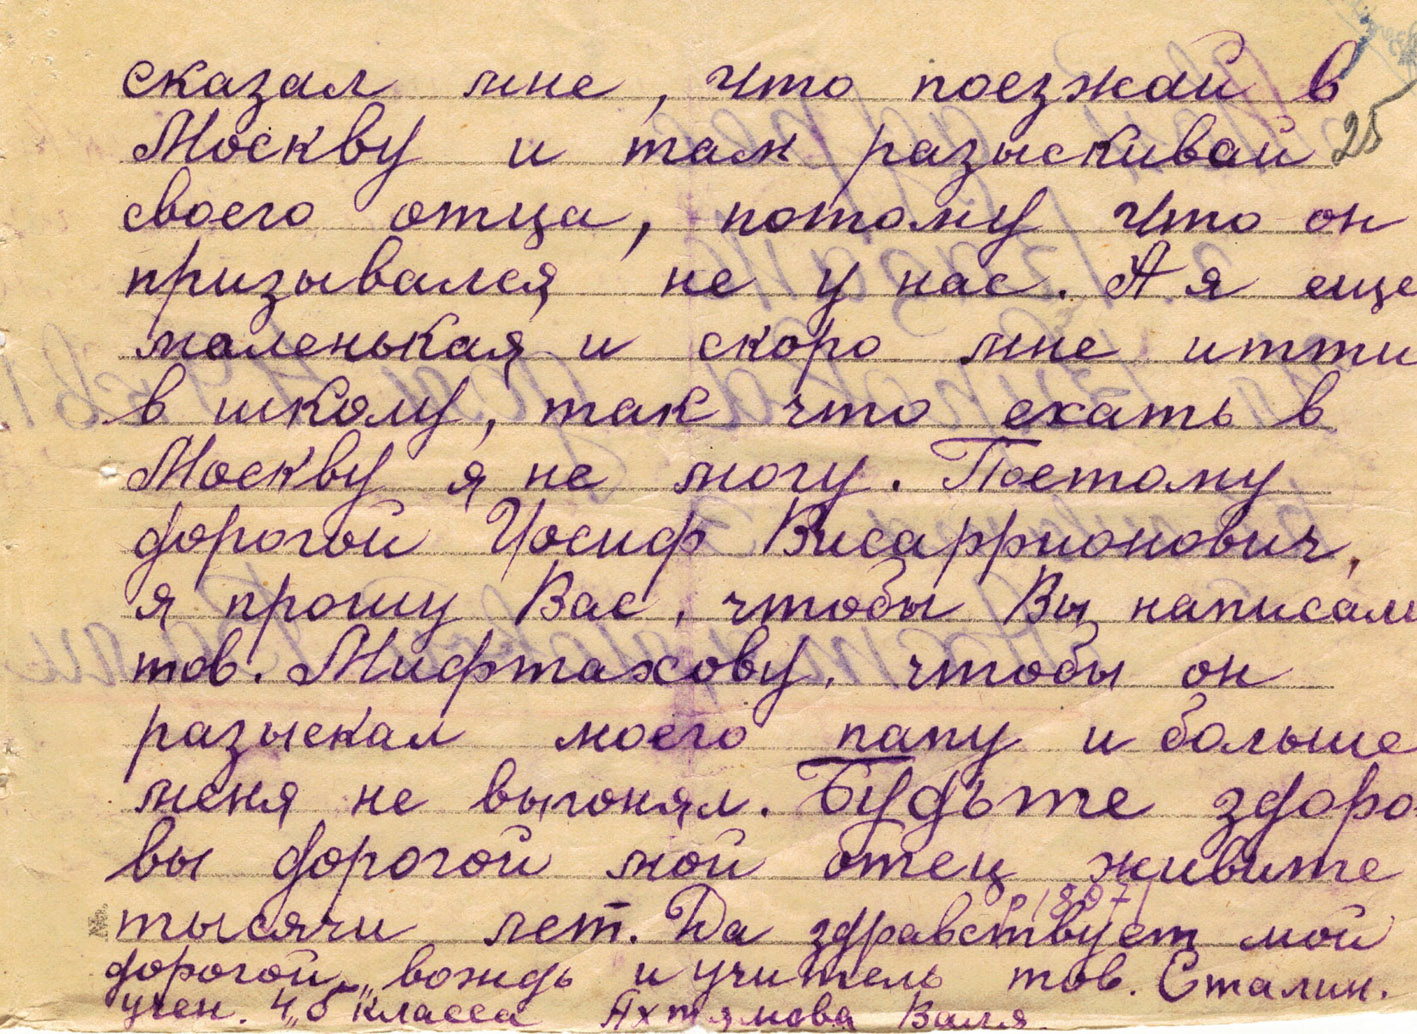 25
сказал мне, что поезжай в
Москву и там разыскивай
своего отца, потому что он
призывался не у нас. А я еще
маленькая и скоро мне итти
в школу, так что ехать в
Москву я не могу. Поетому
дорогой Иосиф Висаррионович,
я прошу Вас, чтобы Вы написали
тов. Мифтахову, чтобы он
разыскал моего папу и больше
меня не выгонял. Будьте здоро
вы дорогой мой отец живите
тысячи лет. Да здравствует мой
дорогой вождь и учитель тов. Сталин.
учен. 4 „б" класса Ахтямова Валя.